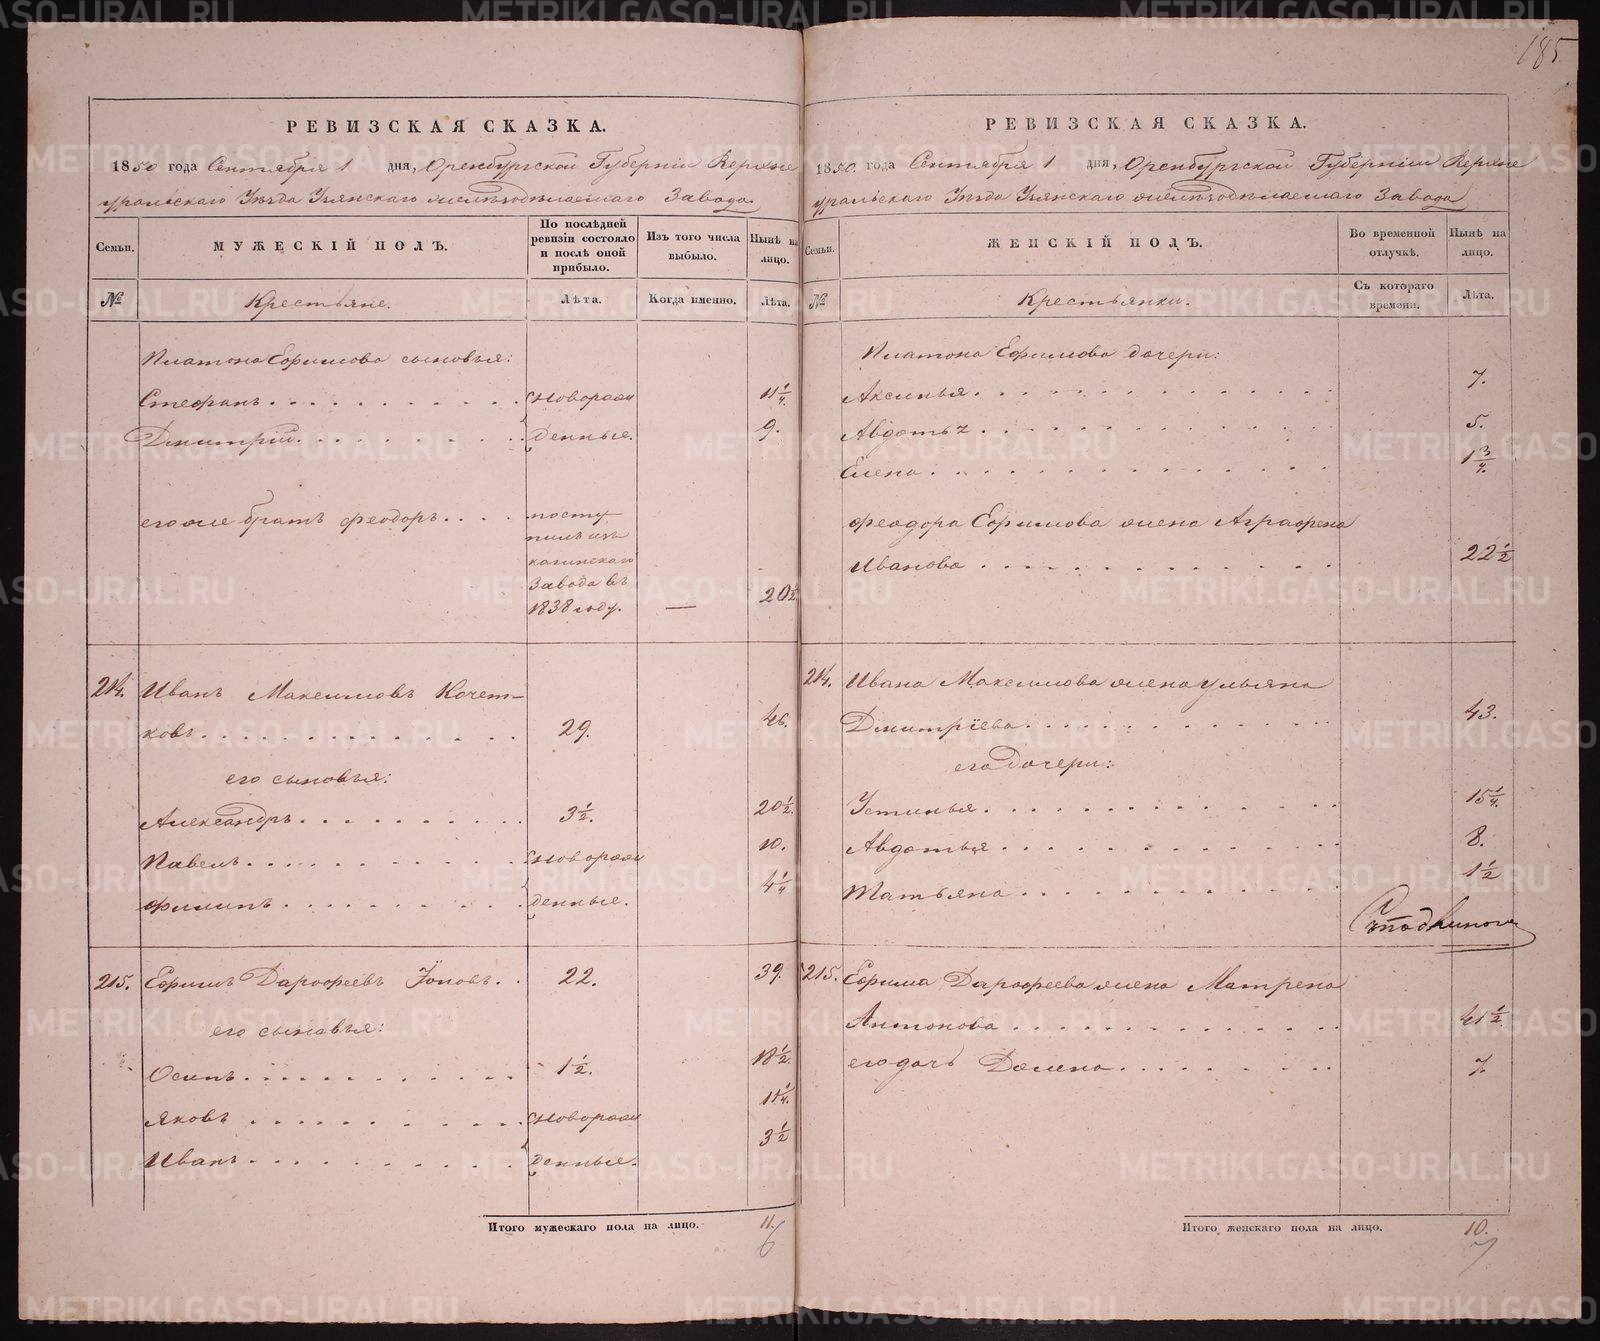 185
РЕВИЗСКАЯ СКАЗКА.
1850 года Сентября 1 дня, Оренбургской Губерніи Верхне
уральскаго Уѣзда Узянскаго желѣзодѣлаемаго Завода.
Семьи.
МУЖЕСКІЙ ПОЛЪ.
По послѣдней ревизіи состояло и послѣ оной прибыло.
Изъ того числа выбыло.
Нынѣ на лицо.
№
Крестьяне.
Лѣта.
Когда именно.
Лѣта.
Платона Ефимова сыновья:
Стефанъ новорож 11 1/4.
Дмитрій денные. 9.
его же братъ Феодоръ посту
пилъ изъ
кагинскаго
Завода въ
1838 году. — 20 1/2
214. Иванъ Максимовъ Кочет-
ковъ 29. 46.
его сыновья:
Александръ 3 1/2. 20 1/2.
Павелъ новорож 10.
Филипъ денные. 4 1/4
215. Ефимъ Дарофеевъ Іоновъ. 22. 39.
его сынавья:
Осипъ 1 1/2. 18 1/2.
Яковъ новорож 11 1/4.
Иванъ денные. 3 1/2
Итого мужескаго пола на лицо. 11.
6
РЕВИЗСКАЯ СКАЗКА.
1850. года Сентября 1 дня, Оренбургской Губерніи Верхне
уральскаго Уѣзда Узянскаго желѣзодѣлаемаго Завода
Семьи.
ЖЕНСКІЙ ПОЛЪ.
Во временной отлучкѣ.
Нынѣ на лицо.
№
Крестьянки.
Съ котораго времени.
Лѣта.
Платона Ефимова дочери:
Аксинья 7.
Авдотья 5.
Елена 1 3/4.
Феодора Ефимова жена Аграфена
Иванова 22 1/2
214. Ивана Максимова жена Ульяна
Дмитріева 43.
его дочери:
Устинья 15 1/4.
Авдотья 8.
Татьяна 1 1/2
215. Ефима Дарофеева жена Матрена
Антонова 41 1/2
его дочь Домна 7.
Итого женскаго пола на лицо. 10.
7
METRIKI.GASO-URAL.RU